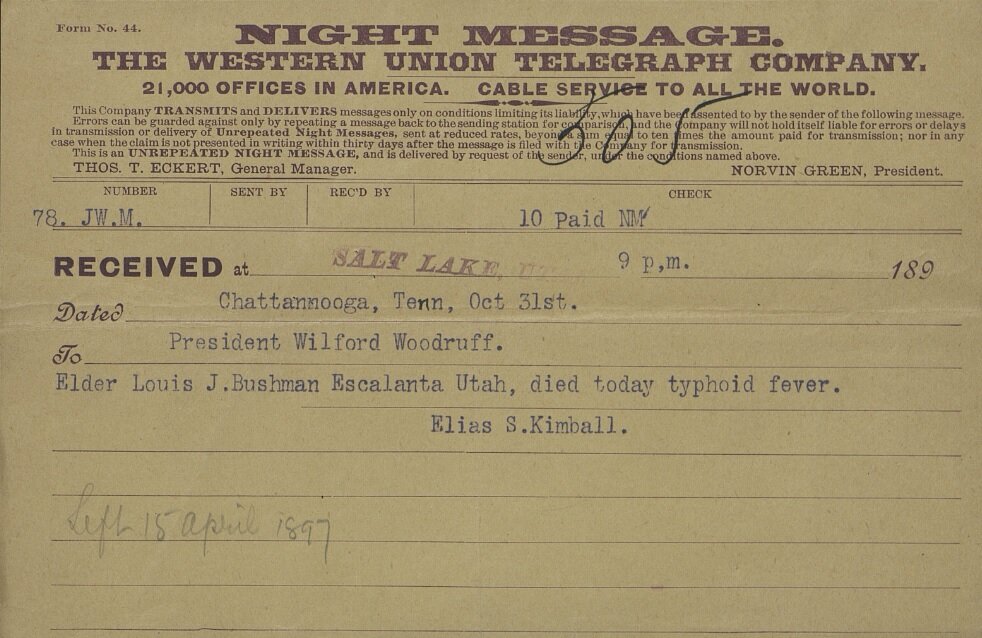 Form No. 44.
NIGHT MESSAGE.
THE WESTERN UNION TELEGRAPH COMPANY.
21,000 OFFICES IN AMERICA. CABLE SERVICE TO ALL THE WORLD.
This Company TRANSMITS and DELIVERS messages only on conditions limiting its liability, which have been assented to by the sender of the following message.
Errors can be guarded against only by repeating a message back to the sending station for comparison, and the Company will not hold itself liable for errors or delays
in transmission or delivery of Unrepeated Night Messages, sent at reduced rates, beyond a sum equal to ten times the amount paid for transmission; nor in any
case when the claim is not presented in writing within thirty days after the message is filed with the Company for transmission.
This is an UNREPEATED NIGHT MESSAGE, and is delivered by request of the sender, under the conditions named above.
305
THOS. T. ECKERT, General Manager. NORVIN GREEN, President.
NUMBER SENT BY REC'D BY CHECK
78. JW.M. 10 Paid NM
RECEIVED at SALT LAKE, 9 p,m. 189
Dated Chattannooga, Tenn, Oct 31st.
To President Wilford Woodruff.
Elder Louis J.Bushman Escalanta Utah, died today typhoid fever.
Elias S.Kimball.
Left 15 April 1897